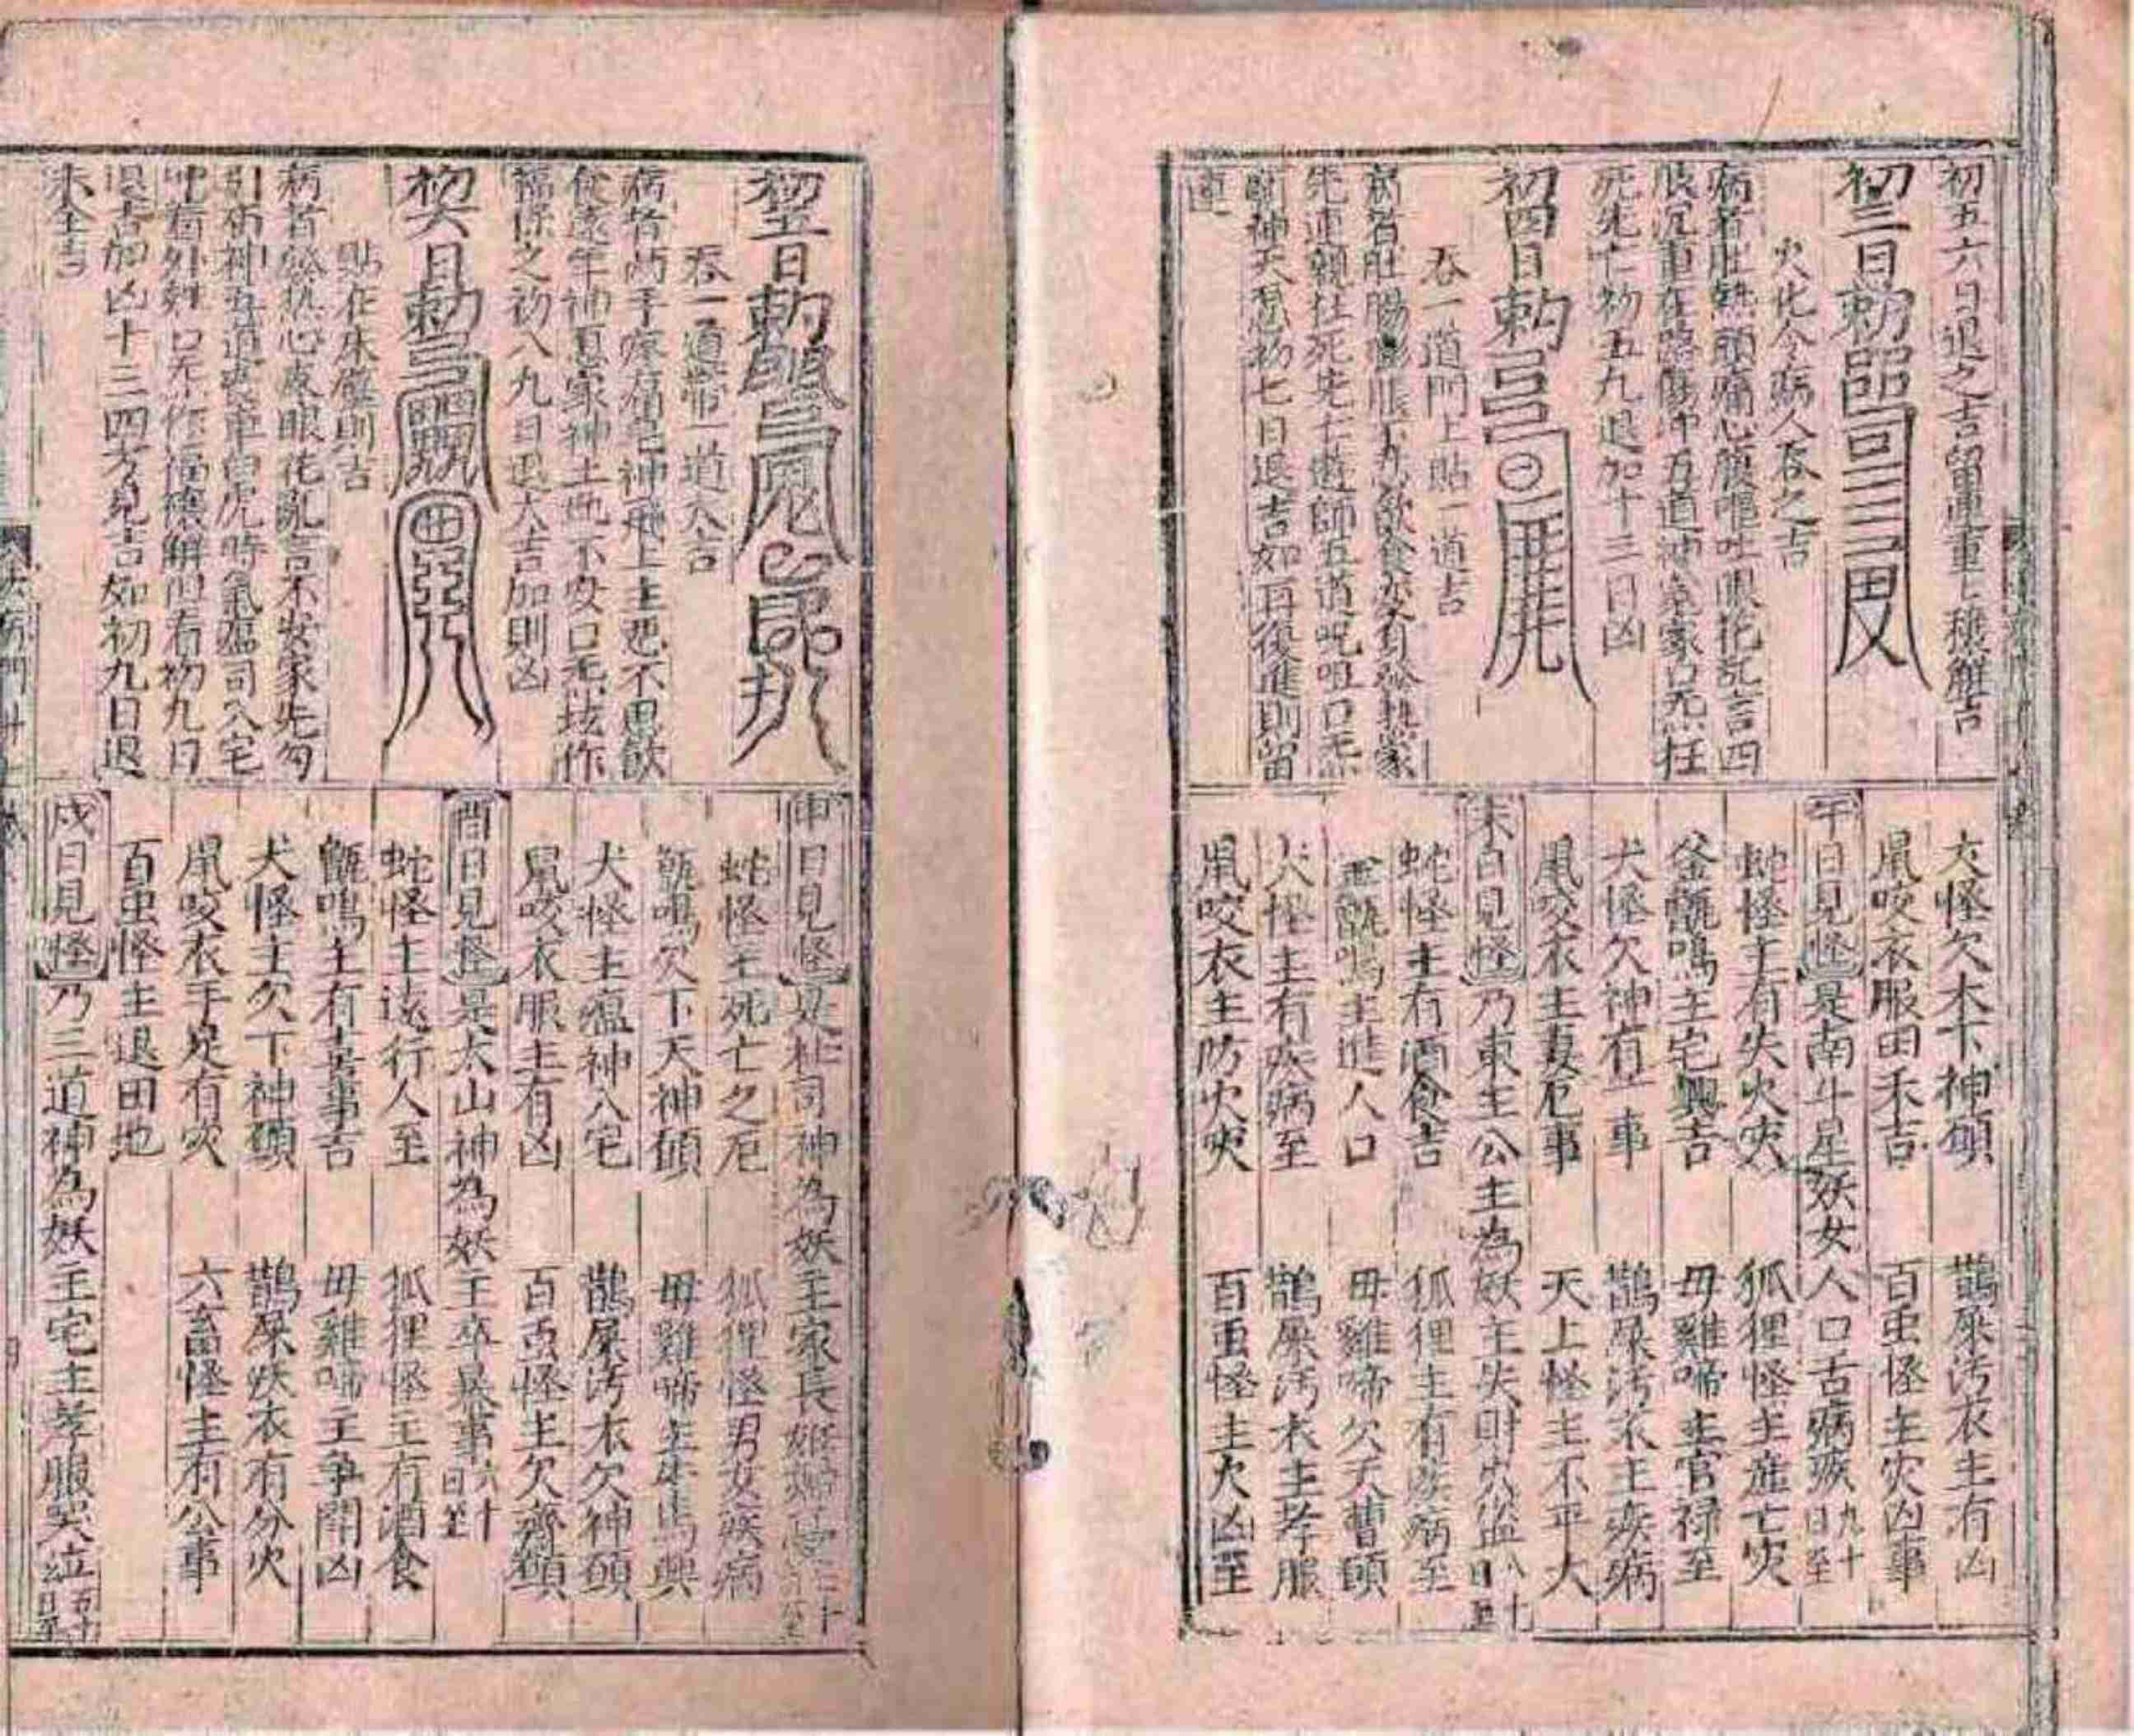 初五六日退之吉留連重亡穰解吉
初三日勅
火化令病人吞之吉
病者肚熱頭痛心腹嘔吐眼花乱言四
肢沉重在落傷冲五道神家口无狂
死先亡初五九退加十三日凶
初四日勅
吞一道門上貼一道吉
病者肚腸膨脹下九飲食不安身發熱家
先連親社死先亡遊師五道咒咀口无
關神天忌初七日退吉如再復進則留
連
犬怪欠木下神願
鵲屎汚衣主有凶
鼠咬衣服田禾吉
百虫怪主灾凶事
午日見怪是南斗星妖女人口舌病疾九十日至
蛇怪主有失火灾
狐狸怪主產亡灾
釜甑鳴主宅興吉
母雞啼主官禄至
犬怪欠神有一事
鵲屎汚衣主疾病
鼠咬衣主妻厄事
天上怪主不平大
未日見怪乃東主公主為妖主失財灾盗八十日至
蛇怪主有酒食吉
狐狸主有疾病至
釜甑鳴主進人口
母雞啼欠天曹願
犬怪主有疾病至
鵲屎汚衣主孝服
鼠咬衣主防火灾
百虫怪主大凶至
初五日勅
吞一道帶一道大吉
病者兩手疼痛邑神飛上主恶不思飲
食遠年神冤家神土地不安口无㧞作
福保之初八九日退大吉加則凶
初六日勅
貼在床應則吉
病者發热心皮眼花乱言不安家先勾
引術神五道喪車白虎時氣瘟司入宅
冲宿外鬼口无作福禳解但有初九日
退吉加凶十三四方見吉如初九日退
未全吉
申日見怪是社司神為妖主家長姬婦
蛇怪主死亡之厄
狐狸怪男女疾病
甑鳴欠下天神願
母雞啼主牛馬興
犬怪主瘟神入宅
鵲屎汚衣欠神願
鼠咬衣服主有凶
百虫怪主欠齋願
酉日見怪是太山神為妖主卒暴事六十日至
蛇怪主遠行人至
狐狸怪主有酒食
甑鳴主有喜事吉
母雞啼主爭鬧凶
犬怪主欠下神願
鵲屎汚衣有分火
鼠咬衣手足有灾
六畜怪主有公事
百虫怪主退田地
戌日見怪乃三道神為妖主宅主孝服哭泣五十日至